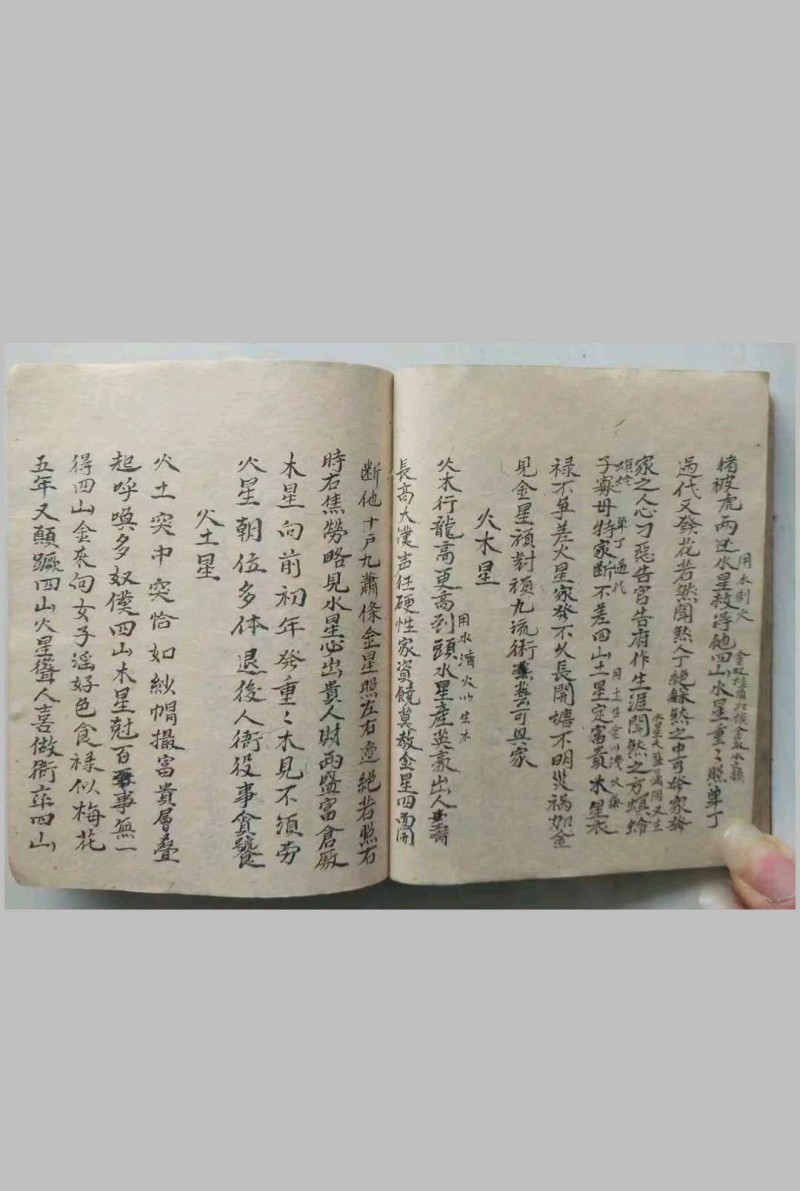 猪被虎両迍水星救得他四山水星重〻照單丁
用水制火
過代又發花若然聞煞人丁絕絲煞之中可
家之人心刁惡告官告府作生涯聞然之方螟蛉
子寡母特家断不差四山土星定富貴木星衣
螟蛉 單丁過代
用土生金以洩火
禄不草差火星家發不久長開塘不明災禍加金
見金星頑對頑九流術藝可興家
火木星
火木行龍高更高到頭水星産英豪出人壽
用水濟火以生木
長高大漢声狂硬性家資饒莫教金星四面開
断他十戶九蕭條金星照左右邉絕若照右
時右焦勞略見水星心出貴人財両盛富倉廒
木星向前初年發重〻木見不須劳
火星朝位多体退後人衙役事貪饕
火土星
火土突中突恰如紗帽撮富貴層疊
起呼喚多奴僕四山木星尅百事無一
得四山金來向女子滛好色食禄似梅花
五年又顛蹶四山火星聳人喜做衙卒四山